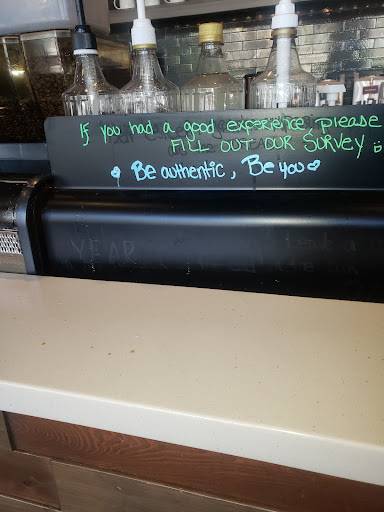 If you had a good experience please
FILL OUT OUR SURVEY
Be authentic, Be you
YEAR